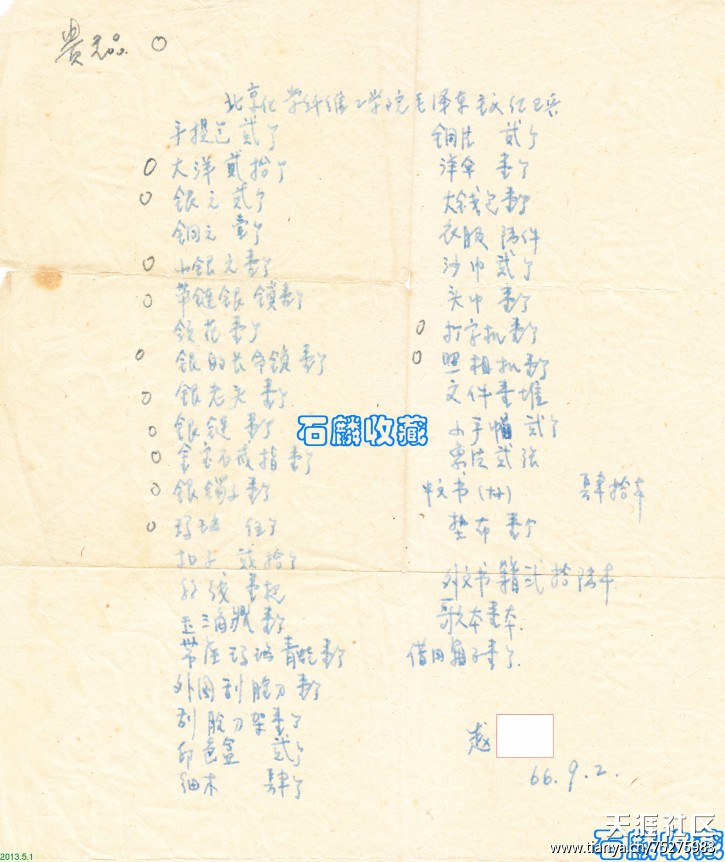 貴品
北京化学纤维工学院毛泽东主义红卫兵
手提包 贰个
大洋 贰拾个
银元 贰个
铜元 壹个
小银元壹个
带链银锁壹个
领花壹个
银的长命锁壹个
银老头 壹个
银链 壹个
金宝石戒指壹个
银镯子壹个
扣子 贰拾个
玉三角鼎壹个
带座玛瑙青蛙壹个
外国刮脸刀壹个
刮脸刀架壹个
印色盒 贰个
细木 肆个
铜片 贰个
洋伞 壹个
大钱包壹个
衣服 陆件
沙巾 贰个
头巾 壹个
打字机壹个
照相机壹个
文件壹堆
小手帽 贰个
贰张
中文书 肆拾本
垫布 壹个
外文书籍贰拾陆本
歌本壹本
借用箱子壹个
赵
66.9.2.
石麟收藏
2013.5.1
天涯社区
石麟收藏
www.tianya.cn/75275983